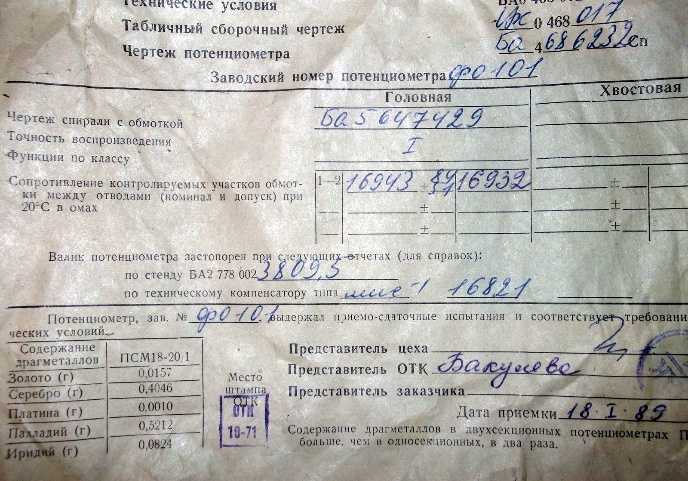 технические условия
Табличный сборочный чертеж 0 468 017
Чертеж потенциометра Ба 4686232сп
Заводский номер потенциометра фо101
Головная Хвостовая
Чертеж спирали с обмоткой Ба5647429
Точность воспроизведения
Функции по классу I
Сопротивление контролируемых участков обмот-
ки между отводами (номинал и допуск) при
20°С в омах
1—2 16943 ± 16932 ±
± ±
± ±
Валик потенциометра застопорен при следующих отчетах (для справок):
по стенду БА2 778 002 3809,5
по техническому компенсатору типа 16821
Потенциометр, зав. № фо101 выдержал приемо-сдаточные испытания и соответствует требовани
ческих условий
Содержание драгметаллов ПСМ18-20/1
Золото (г) 0,0157
Серебро (г) 0,4046
Платина (г) 0,0010
Палладий (г) 0,3212
Иридий (г) 0,0824
Место
штампа
ОТК
ОТК
10-71
Представитель цеха
Представитель ОТК Бакулева
Представитель заказчика
Дата приемки 18·I·89
Содержание драгметаллов в двухсекционных потенциометрах П
больше, чем в односекционных, в два раза.